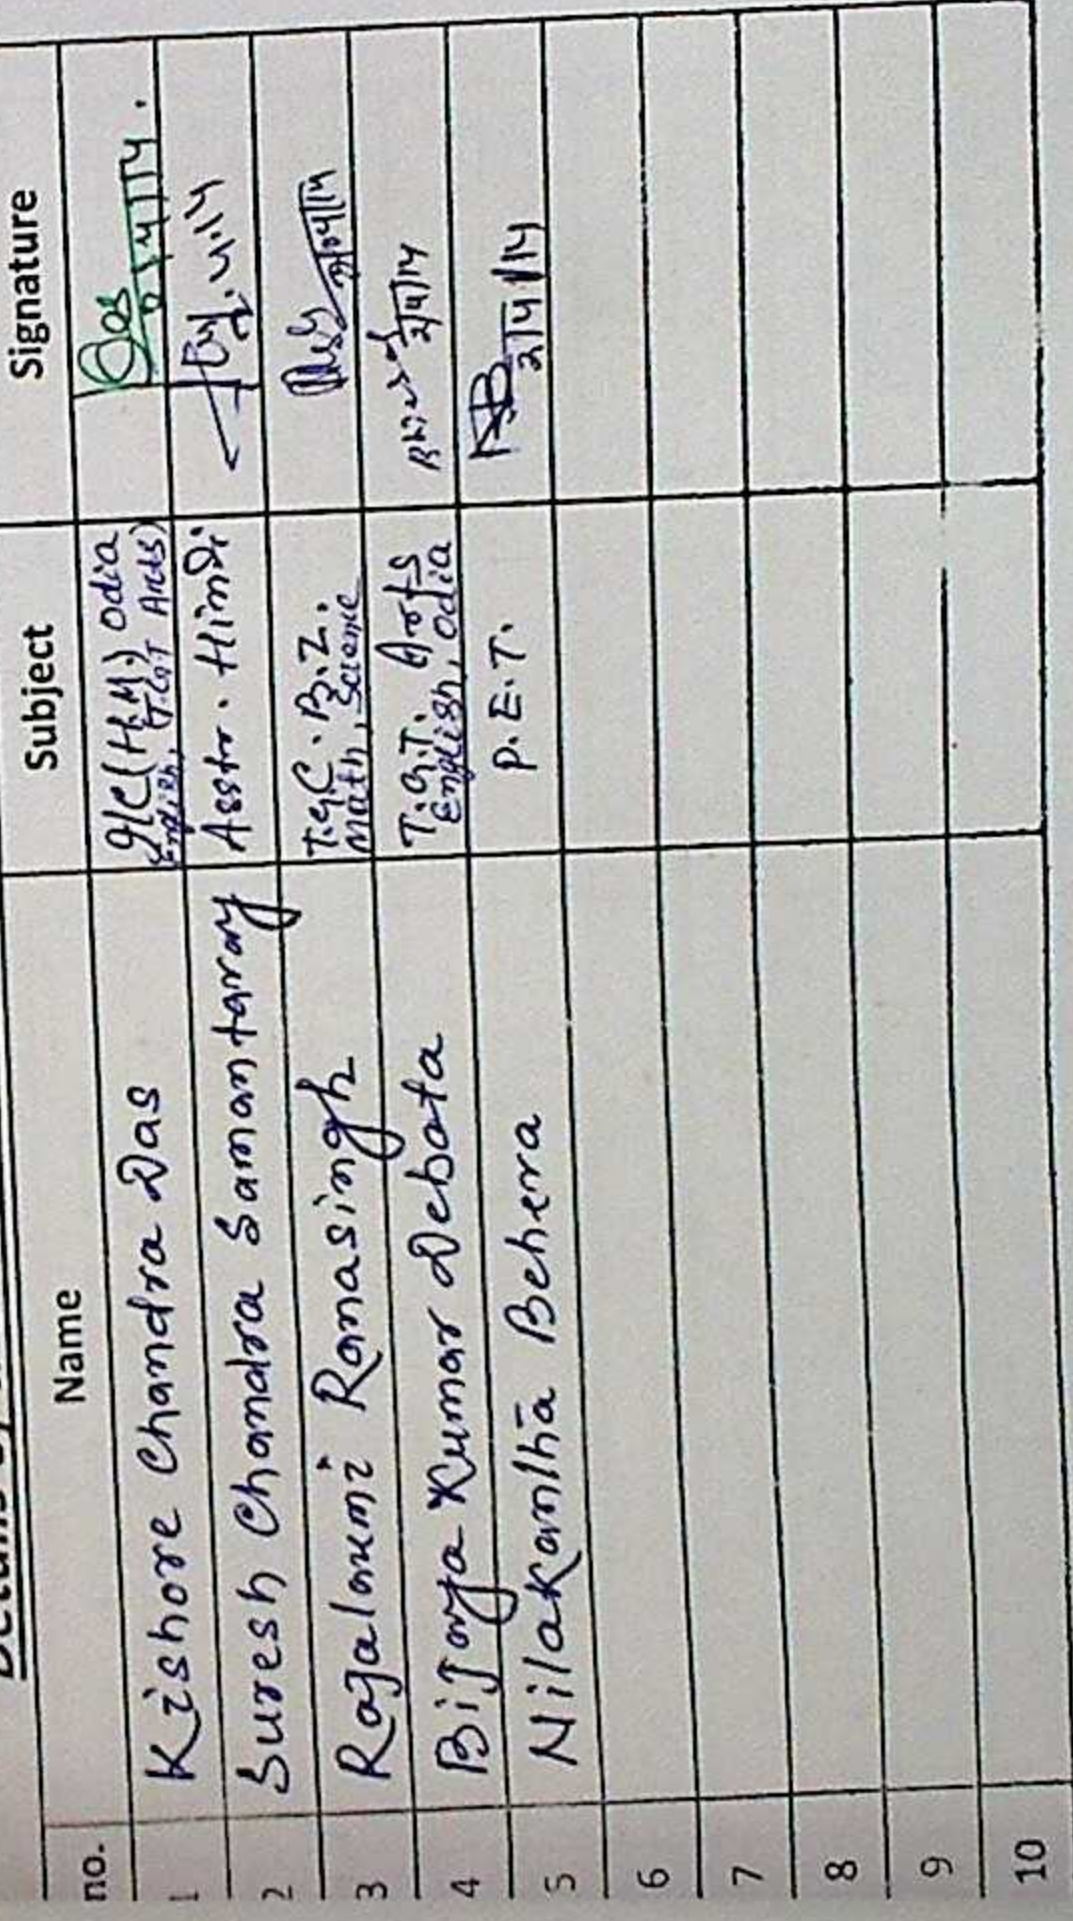 no. Name Subject Signature
1 Kishore Chandra Das I/C (H.M) Odia Das
English, T.G.T Arts)
2 Suresh Chandra Samantaray Asstr. Hindi
3 Rajalaxmi Ranasingh T.G.C.B.Z. 2/04/14
Math, Science
4 Bijaya Kumar Debata T.G.T. Arts 2/4/14
English, Odia
5 Nilakantha Behera P.E.T. 2/4/14
6
7
8
9
10